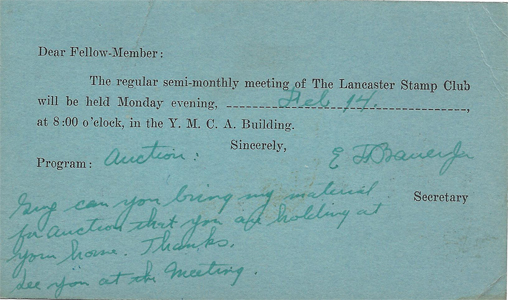 Dear Fellow-Member:
The regular semi-monthly meeting of The Lancaster Stamp Club
will be held Monday evening, Feb 14.,
at 8:00 o'clock, in the Y. M. C. A. Building.
Sincerely,
Program: Auction.
E H Bauer Jr
Secretary
can you bring my material
for auction that you are holding at
your home. Thanks.
See you at the Meeting.